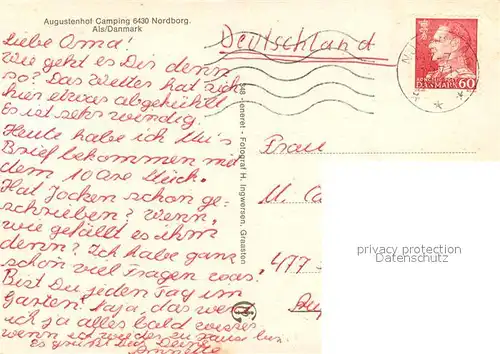 Augustenhof Camping 6430 Nordborg.
Als/Danmark
Liebe Oma!
Wie geht es Dir denn
so? Das Wetter hat sich
hier etwas abgekühlt
Es ist sehr windig.
Heute habe ich
Brief bekommen mit
dem 10 Øre Stück.
Hat Jochen schon ge-
schrieben? Wenn,
wie gefällt es ihm
denn? Ich habe ganz
schön viel Fragen was.
Bist Du jeden Tag im
Garten? Naja, das werd
ich ja alles bald wissen
wenn ich wieder zu Hause bin.
Es grüßt Dich Deine
Annette
Deutschland
DANMARK 60
eneret - Fotograf H. Ingwersen, Graasten
Frau
M.
477
privacy protection